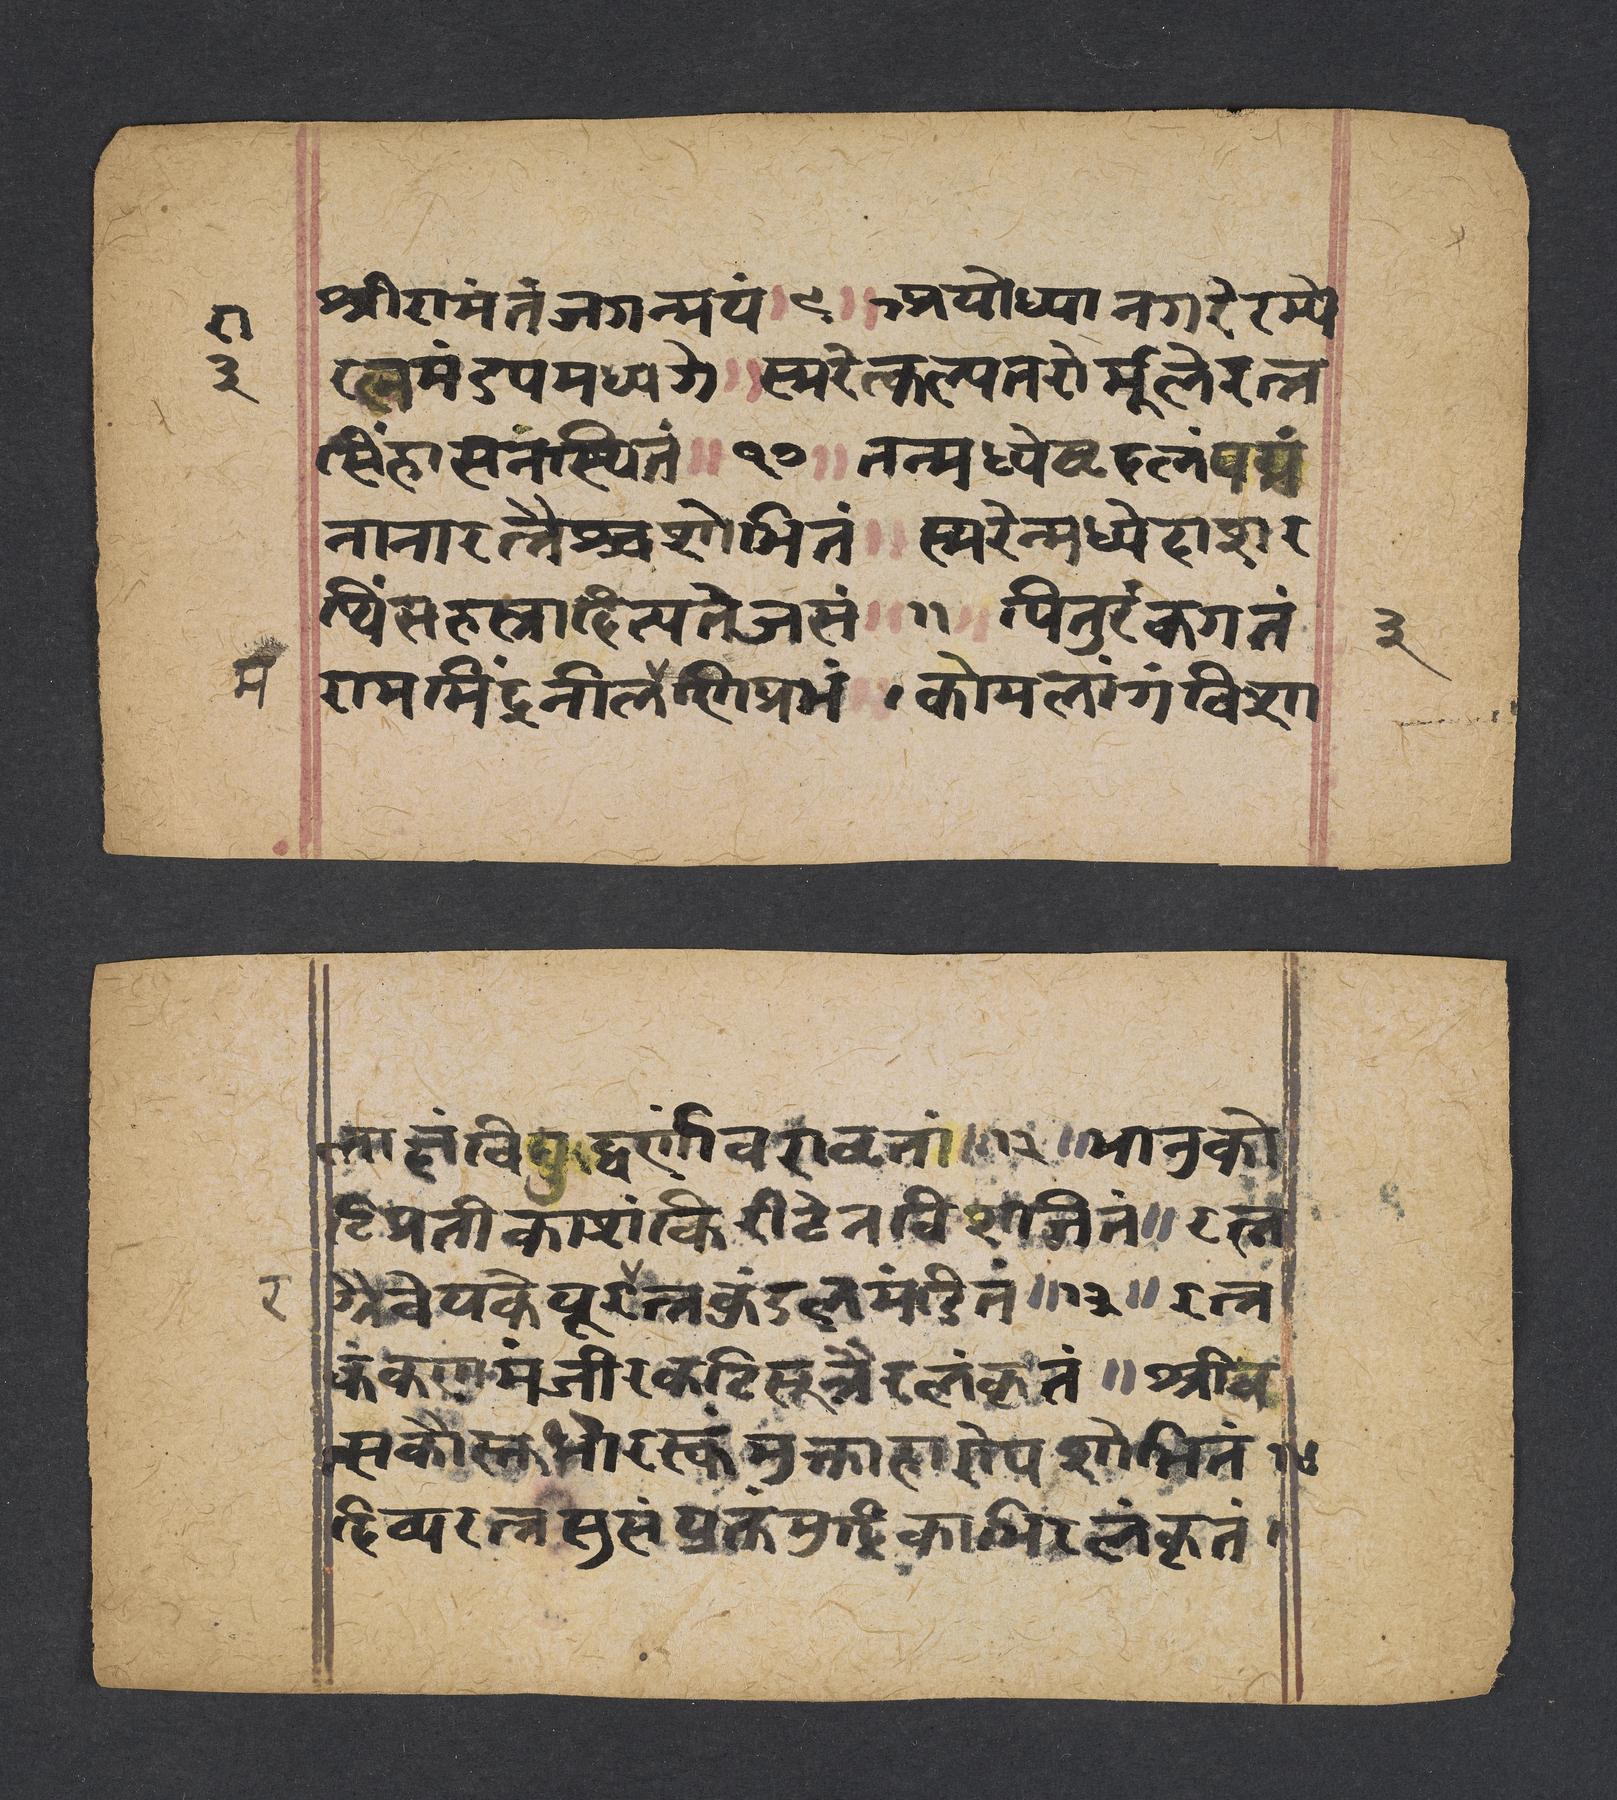 श्रीरामं तं जगन्मयं ॥ ९ ॥ अयोध्यानगरे रम्ये
रा
३
रत्नमंडपमध्यगे ॥ स्मरेत्कल्पतरोर्मूले रत्न
सिंहासनंस्थितं ॥ १० ॥ तन्मध्येष्टदलं पद्मं
नानारत्नैश्च शोभितं ॥ स्मरेन्मध्ये दाशर
थिं सहस्रादित्यतेजसं ॥ ११ ॥ पितुरंकगतं
३
म
राममिंद्रनीलणिप्रभं । कोमलांगं विशा
लाक्षं विद्युद्वर्णांवरावृतां ॥ १२ ॥ भानुको
टिप्रतीकाशं किरीटेन विराजितं ॥ रत्न
र
ग्रैवेयकेयूरत्नकुंडलमंडितं ॥ १३ ॥ रत्न
कंकणमंजीरकटिसूत्रैरलंकृतं ॥ श्रीव
त्सकौस्तुभोरस्कं मुक्ताहारोपशोभितं १४
दिव्यरत्नसुसंयुक्तं मुद्रिकाभिरलंकृतं ।